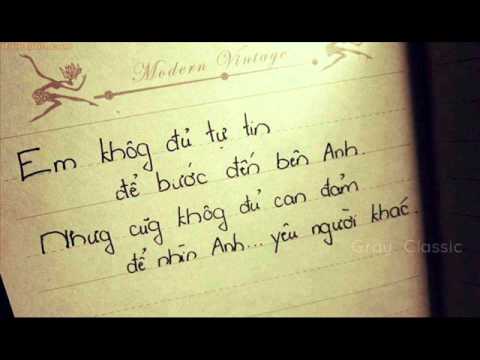 Modern Vintage
Em khôg đủ tự tin
để bước đến bên Anh.
Nhưg cũg khôg đủ can đảm
để nhìn Anh... yêu người khác.
Gray Classic